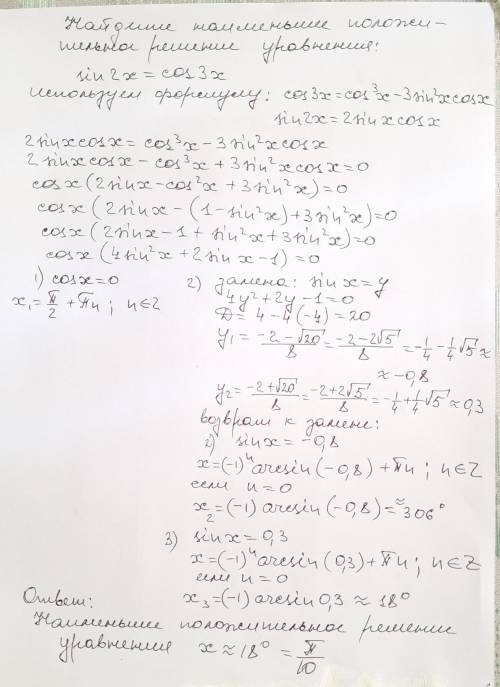 Найдите наименьшее положи-
тельное решение уравнения:
sin2x = cos3x
используем формулу: cos3x=cos³x-3sin²xcosx
sin2x=2sinxcosx
2sinxcosx = cos³x-3sin²xcosx
2sinxcosx-cos³x+3sin²xcosx=0
cosx(2sinx-cos²x+3sin²x)=0
cosx(2sinx-(1-sin²x)+3sin²x)=0
cosx(2sinx-1+sin²x+3sin²x)=0
cosx(4sin²x+2sinx-1)=0
1) cosx=0
x₁=π/2+πn; n∈Z
2) замена: sinx=y
4y²+2y-1=0
D=4-4(-4)=20
y₁=(-2-√20)/8=(-2-2√5)/8=-1/4-1/4√5≈
≈-0,8
y₂=(-2+√20)/8=(-2+2√5)/8=-1/4+1/4√5≈0,3
возврат к замене:
2) sinx=-0,8
x=(-1)ⁿarcsin(-0,8)+πn; n∈Z
если n=0
x₂=(-1)arcsin(-0,8)=≈306°
3) sinx=0,3
x=(-1)ⁿarcsin(0,3)+πn; n∈Z
если n=0
x₃=(-1)arcsin0,3≈18°
Ответ:
Наименьшее положительное решение
уравнения x≈18°=π/10